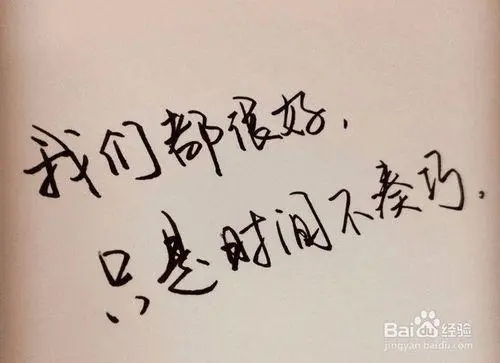 我们都很好，
只是时间不凑巧，
Bai du 经验
jingyan.baidu.com